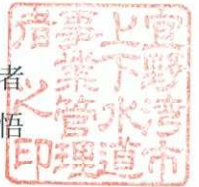 者
悟
宜野湾市
上下水道
事業管理
者之印